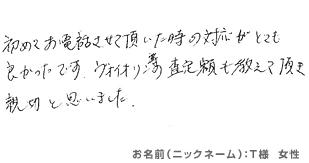 初めてお電話させて頂いた時の対応がとても
良かったです。ヴァイオリンの査定額も教えて頂き
親切と思いました。
お名前(ニックネーム):T様 女性